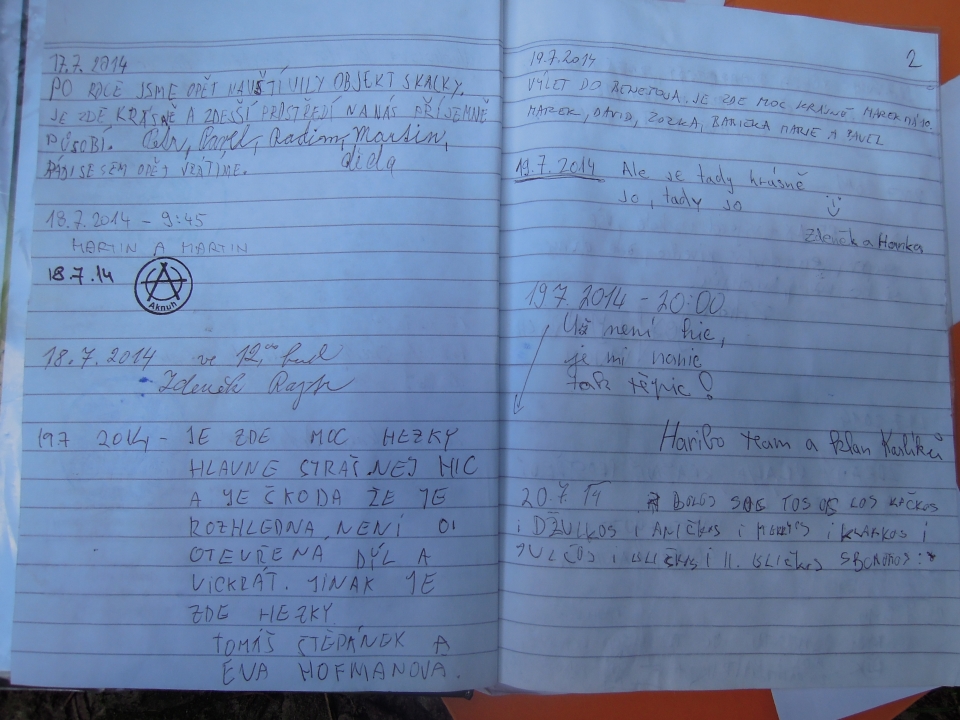 17.7.2014
PO ROCE JSME OPĚT NAVŠTÍVILY OBJEKT SKALKY.
JE ZDE KRÁSNĚ A ZDEJŠÍ PROSTŘEDÍ NA NÁS PŘÍJEMNĚ
PŮSOBÍ. Petr, Pavel, Radim, Martin,
RÁDI SE SEM OPĚT VRÁTÍME.
18.7.2014 - 9:45
MARTIN A MARTIN
18.7.14
Aknuh
18.7.2014 ve 12,00 hod
Zdeněk
19.7 2014 - JE ZDE MOC HEZKY
HLAVNE STRAŠNEJ HIC
A JE ŠKODA ŽE JE
ROZHLEDNA NENÍ
OTEVŘENÁ DÝL A
VICKRÁT. JINAK JE
ZDE HEZKY
TOMÁŠ ŠTĚPÁNEK A
EVA HOFMANOVA.
2
19.7.2014
VÝLET DO BENEŠOVA. JE ZDE MOC KRÁSNĚ. MAREK
MAREK, DAVID, BARIČKA MARIE A PAVEL
19.7.2014 Ale je tady krásně
jo, tady jo
Zdeněk a Hanka
19.7.2014 - 20:00
Už není hic,
je mi nanic
tak
Haribo team a klan Karlíků
20.7.14 BOLOS TOS LOS KAČKOS
i DŽULKOS i ANIČKOS i i KLÁRKOS i